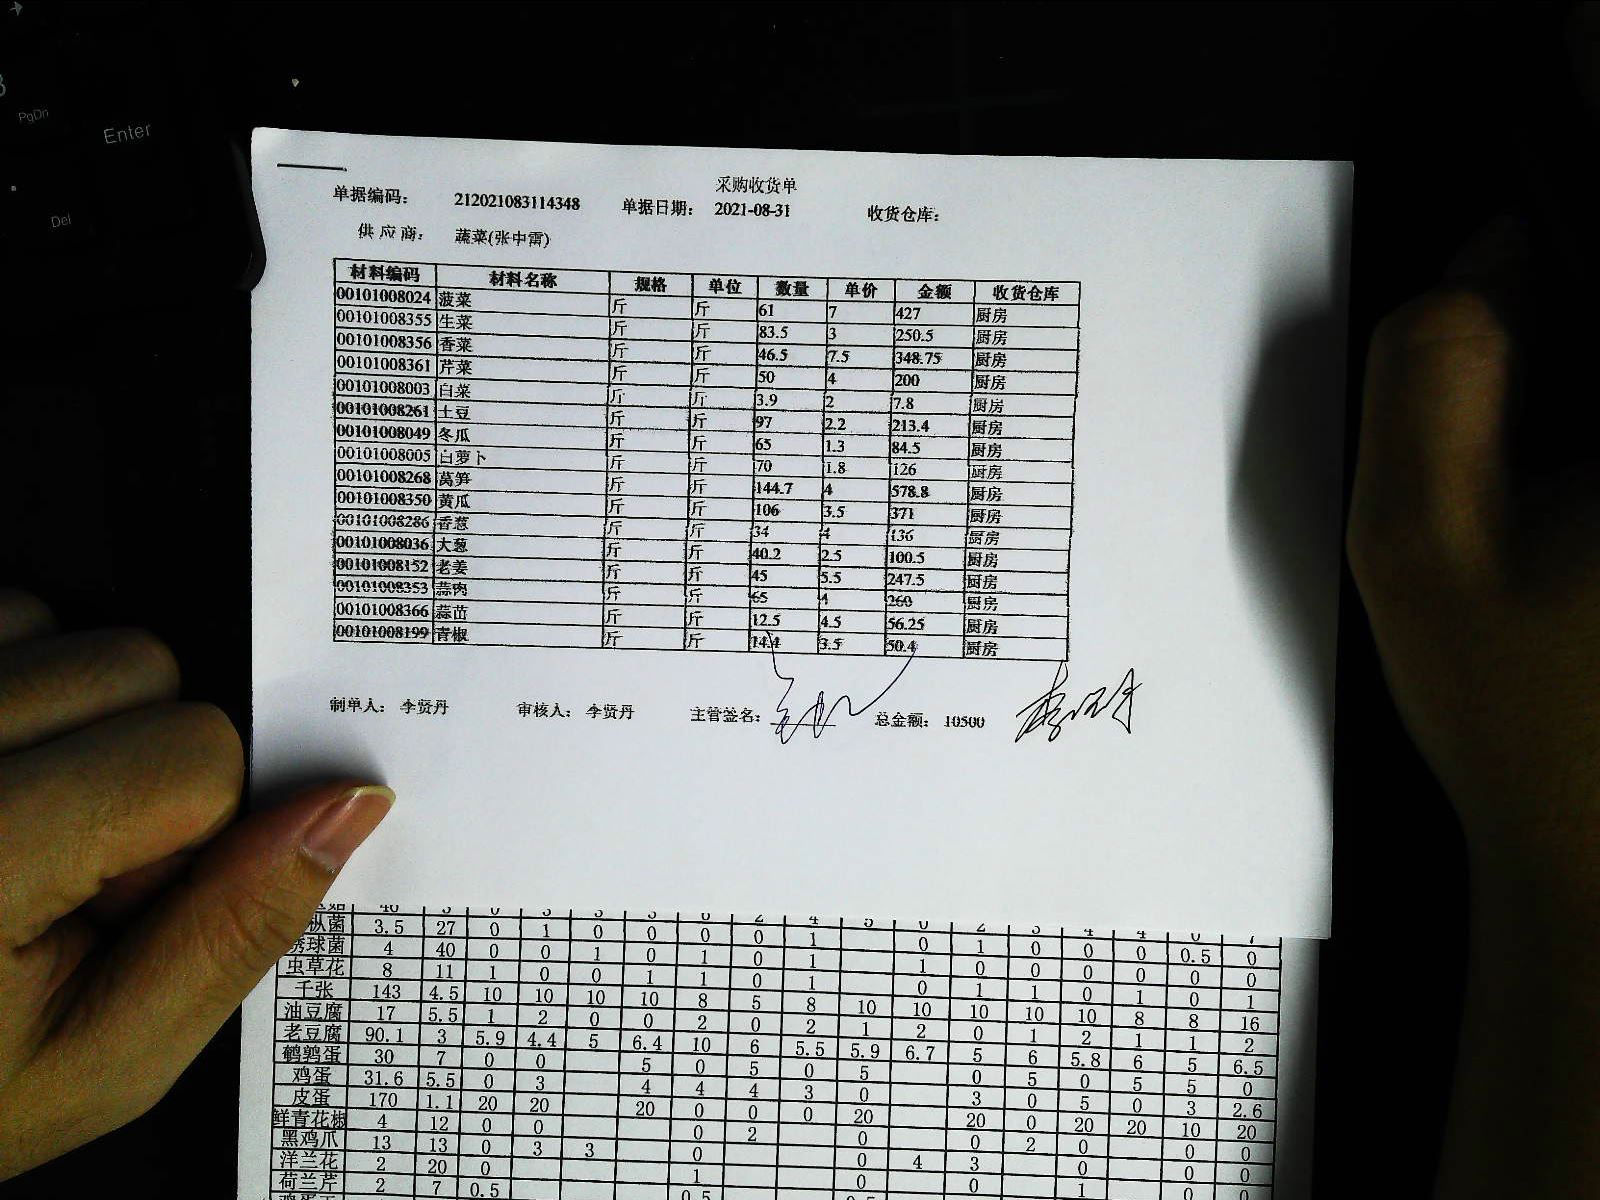 PgDn
Enter
Del
采购收货单
单据编码： 212021083114348 单据日期： 2021-08-31 收货仓库：
供应商： 蔬菜(张中雷)
材料编码 材料名称 规格 单位 数量 单价 金额 收货仓库
00101008024 菠菜 斤 斤 61 7 427 厨房
00101008355 生菜 斤 斤 83.5 3 250.5 厨房
00101008356 香菜 斤 斤 46.5 7.5 348.75 厨房
00101008361 芹菜 斤 斤 50 4 200 厨房
00101008003 白菜 斤 斤 3.9 2 7.8 厨房
00101008261 土豆 斤 斤 97 2.2 213.4 厨房
00101008049 冬瓜 斤 斤 65 1.3 84.5 厨房
00101008005 白萝卜 斤 斤 70 1.8 126 厨房
00101008268 莴笋 斤 斤 144.7 4 578.8 厨房
00101008350 黄瓜 斤 斤 106 3.5 371 厨房
00101008286 香葱 斤 斤 34 4 136 厨房
00101008036 大葱 斤 斤 40.2 2.5 100.5 厨房
00101008152 老姜 斤 斤 45 5.5 247.5 厨房
00101008353 蒜肉 斤 斤 65 4 260 厨房
00101008366 蒜苗 斤 斤 12.5 4.5 56.25 厨房
00101008199 青椒 斤 斤 14.4 3.5 50.4 厨房
制单人： 李贤丹 审核人： 李贤丹 主管签名： 总金额： 10500
枞菌 3.5 27 0 1 0 0 0 0 1 0 1 0 0 0 0.5 0
绣球菌 4 40 0 0 1 0 1 0 1 1 0 0 0 0 0 0
虫草花 8 11 1 0 0 1 1 0 1 0 1 1 0 1 0 1
千张 143 4.5 10 10 10 10 8 5 8 10 10 10 10 10 8 8 16
油豆腐 17 5.5 1 2 0 0 2 0 2 1 2 0 1 2 1 1 2
老豆腐 90.1 3 5.9 4.4 5 6.4 10 6 5.5 5.9 6.7 5 6 5.8 6 5 6.5
鹌鹑蛋 30 7 0 0 5 0 5 0 5 0 5 0 5 5 0
鸡蛋 31.6 5.5 0 3 4 4 4 3 0 3 0 5 0 3 2.6
皮蛋 170 1.1 20 20 20 0 0 0 20 20 0 20 20 10 20
鲜青花椒 4 12 0 0 0 2 0 0 2 0 0 0
黑鸡爪 13 13 0 3 3 0 0 4 3 0 0 0
洋兰花 2 20 0 1 0 0 1 0 0
荷兰芹 2 7 0.5